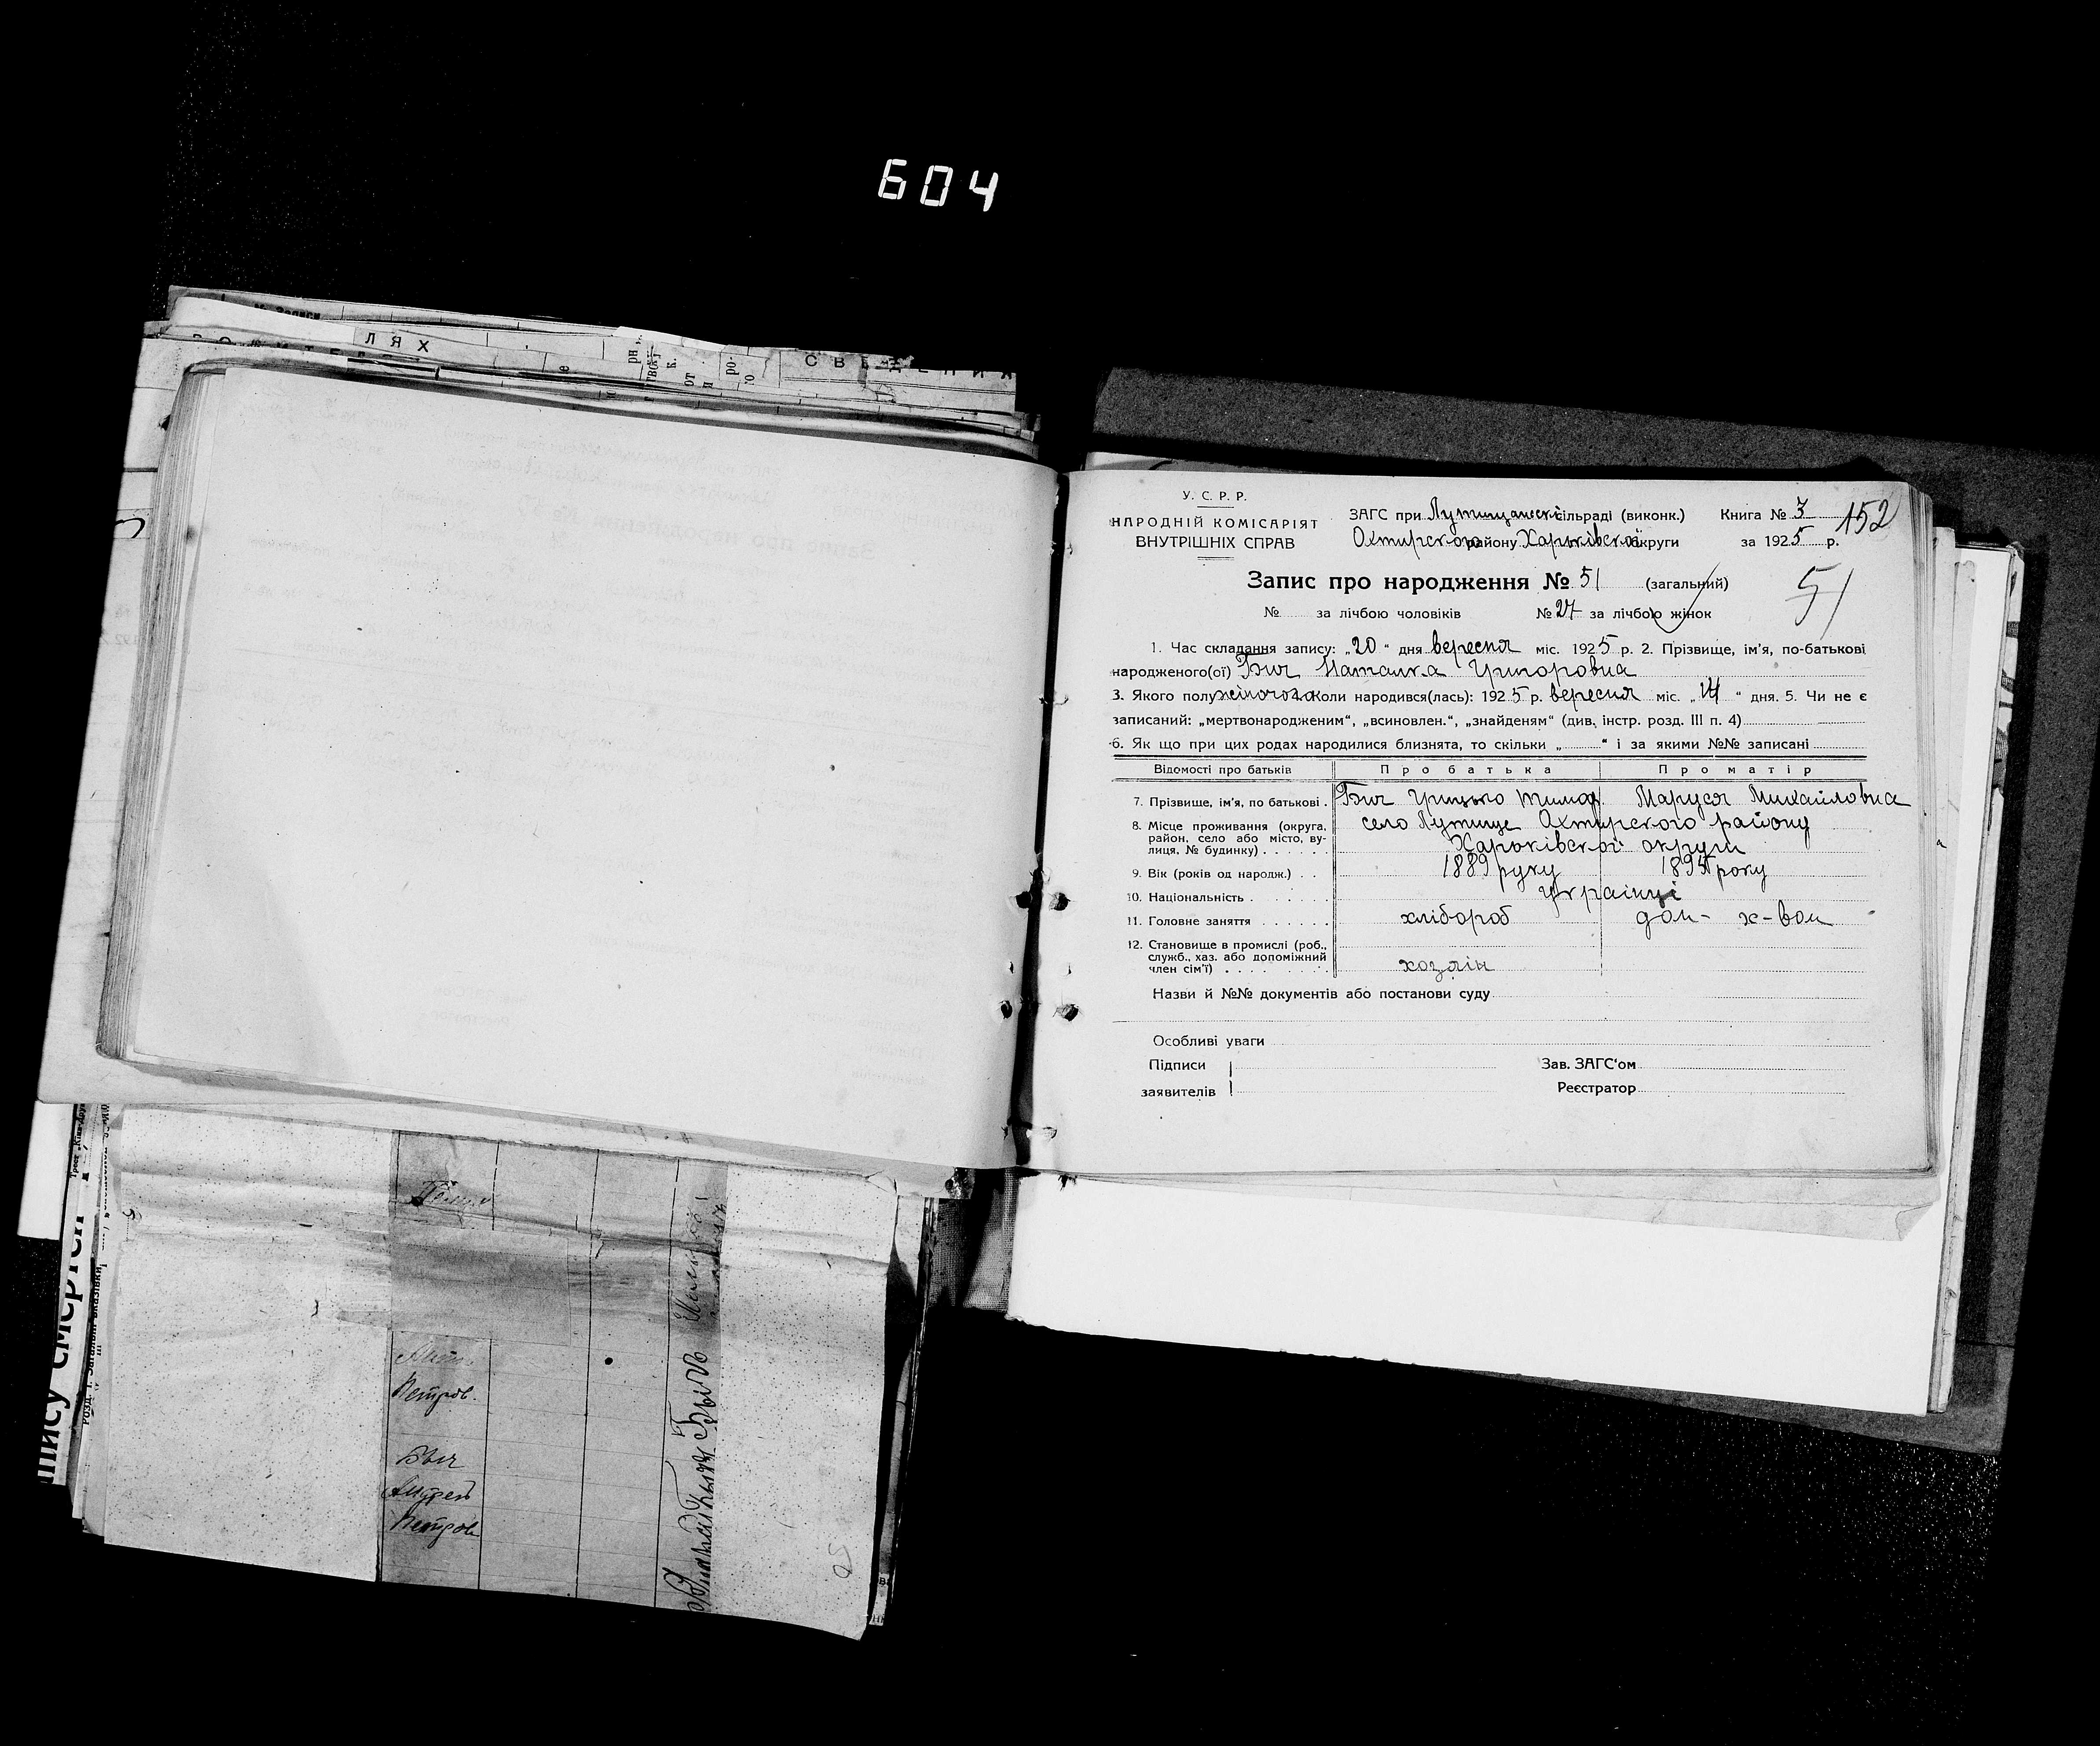 604
ЛЯХ
У. С. Р. Р.
НАРОДНІЙ КОМІСАРІЯТ
ВНУТРІШНІХ СПРАВ
ЗАГС при Лутищанскі сільраді (виконк.)
Охтирского району Харьківскої округи
Книга № 3
за 1925 р.
152
Запис про народження № 51 (загальний)
51
№ за лічбою чоловіків № 27 за лічбою жінок
1. Час складання запису: „20" дня вересня міс. 1925 р. 2. Прізвище, ім'я, по-батькові
народженого(ої) Бич Наталка Григоровна
3. Якого полу жіночого Коли народився(лась): 1925 р. вересня міс. „14" дня. 5. Чи не є
записаний: „мертвонародженим", „всиновлен.", „знайденям" (див. інстр. розд. III п. 4)
6. Як що при цих родах народилися близнята, то скільки „ " і за якими №№ записані
Відомості про батьків Про батька Про матір
7. Прізвище, ім'я, по батькові . Бич Грицько Тимоф. Маруся Михайловна
8. Місце проживання (округа,
район, село або місто, ву-
лиця, № будинку) . . . . . .
село Лутище Охтирского району
Харьківскої округи
9. Вік (років од народж.) . . 1889 руку року
10. Національність . . . . . . українці
11. Головне заняття . . . . . . хлібороб дом- х-вом
12. Становище в промислі (роб.,
служб., хаз. або допоміжний
член сім'ї) . . . . . . . .
хозяїн
Назви й №№ документів або постанови суду
Особливі уваги
Підписи
заявителів
Зав. ЗАГС'ом
Реєстратор
Петров.
Быч
Андрей
Петров